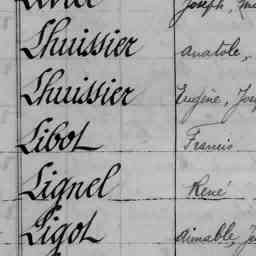 Joseph,
Lhuissier anatole,
Lhuissier Eugène,
Libot Francis
Lignel René
Ligot aimable,